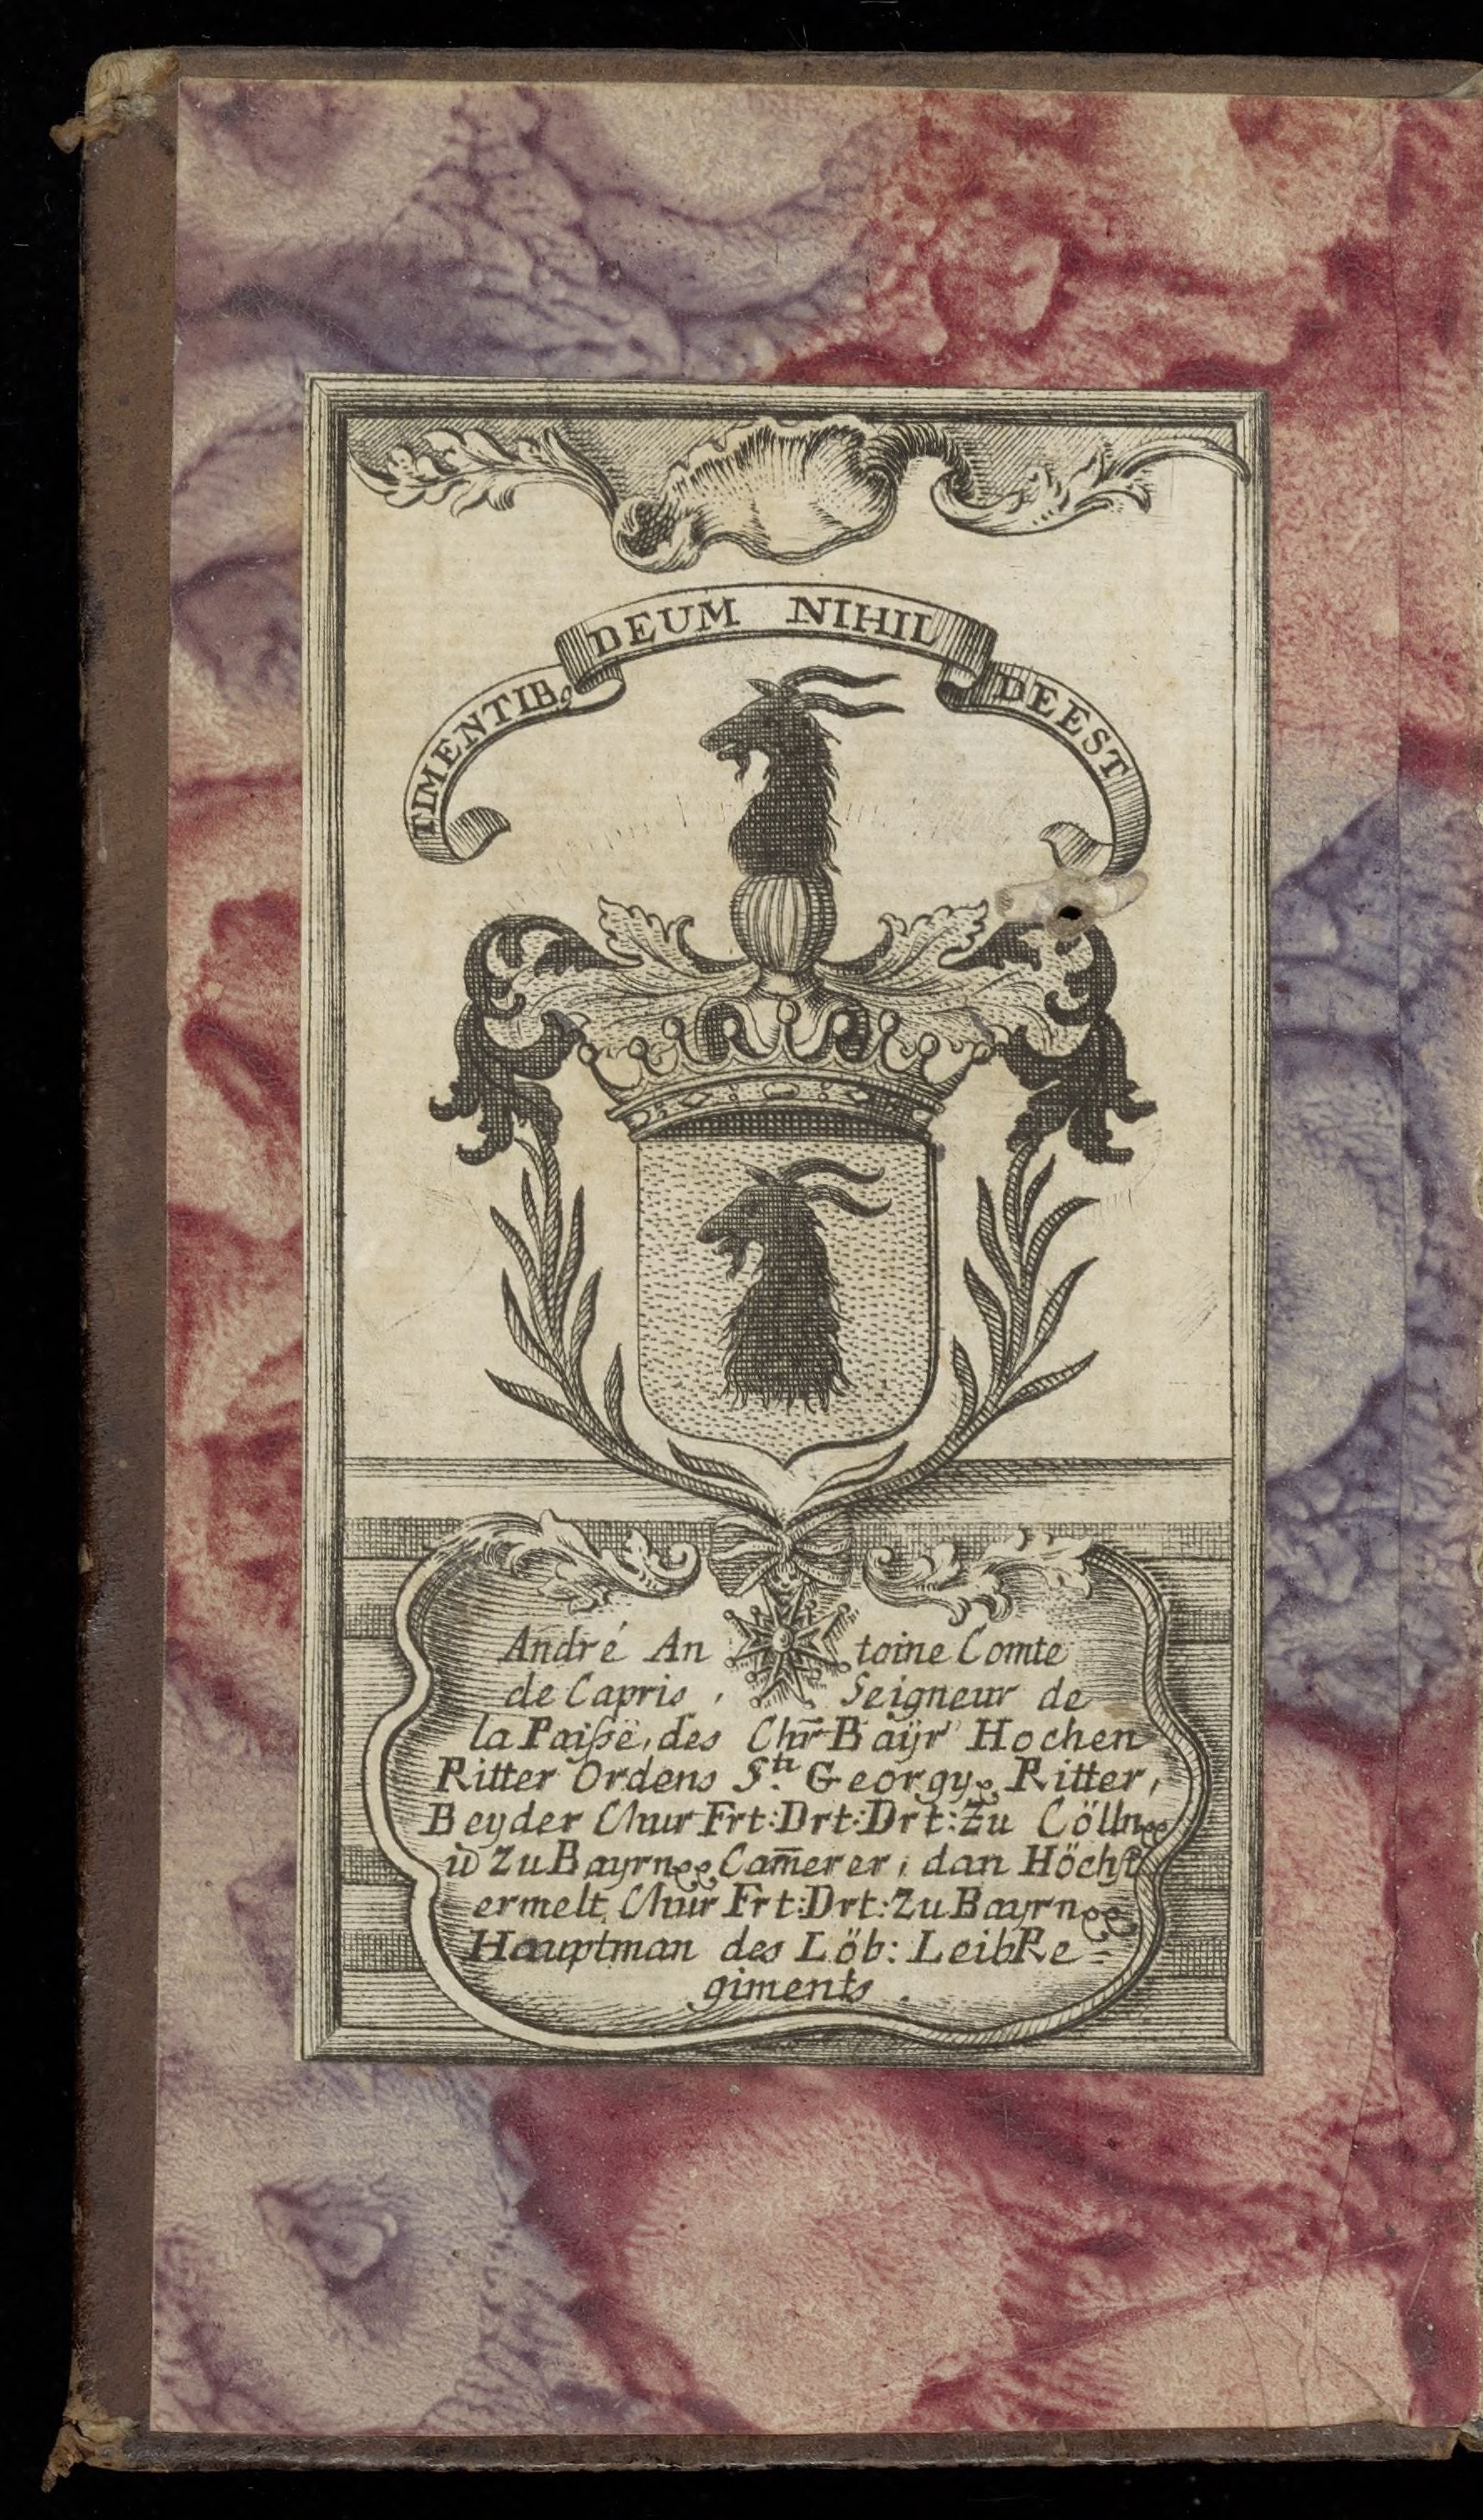 TIMENTIB, DEUM NIHIL DEEST
André An toine Comte
de Capris, Seigneur de
la Paisse, des Chr Baÿr Hochen
Ritter Ordens S.ti Georgy Ritter,
Beyder Chur Frt: Drt: Drt: Zu Cölln
ŭ Zu Bayrn Cam̄erer, dan Höchst
ermelt, Chur Frt: Drt: Zu Bayrn
Hauptman des Löb: Leib Re=
giments.